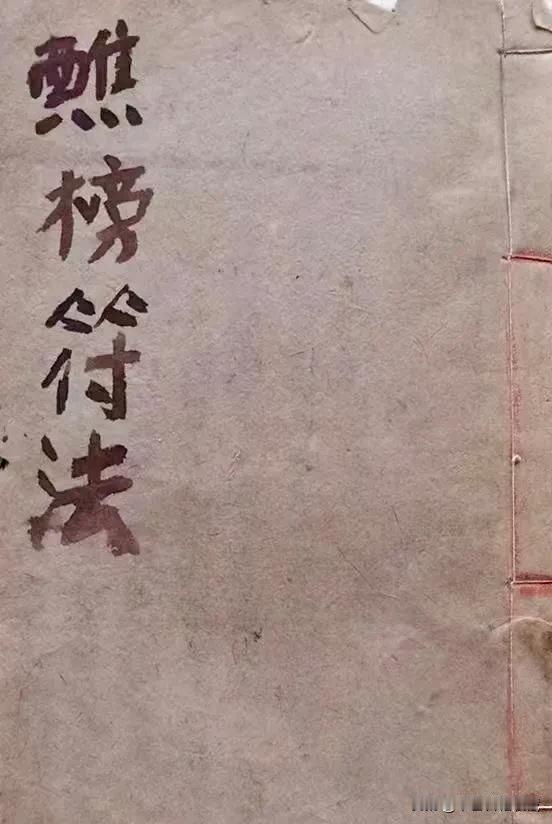 醮榜符法